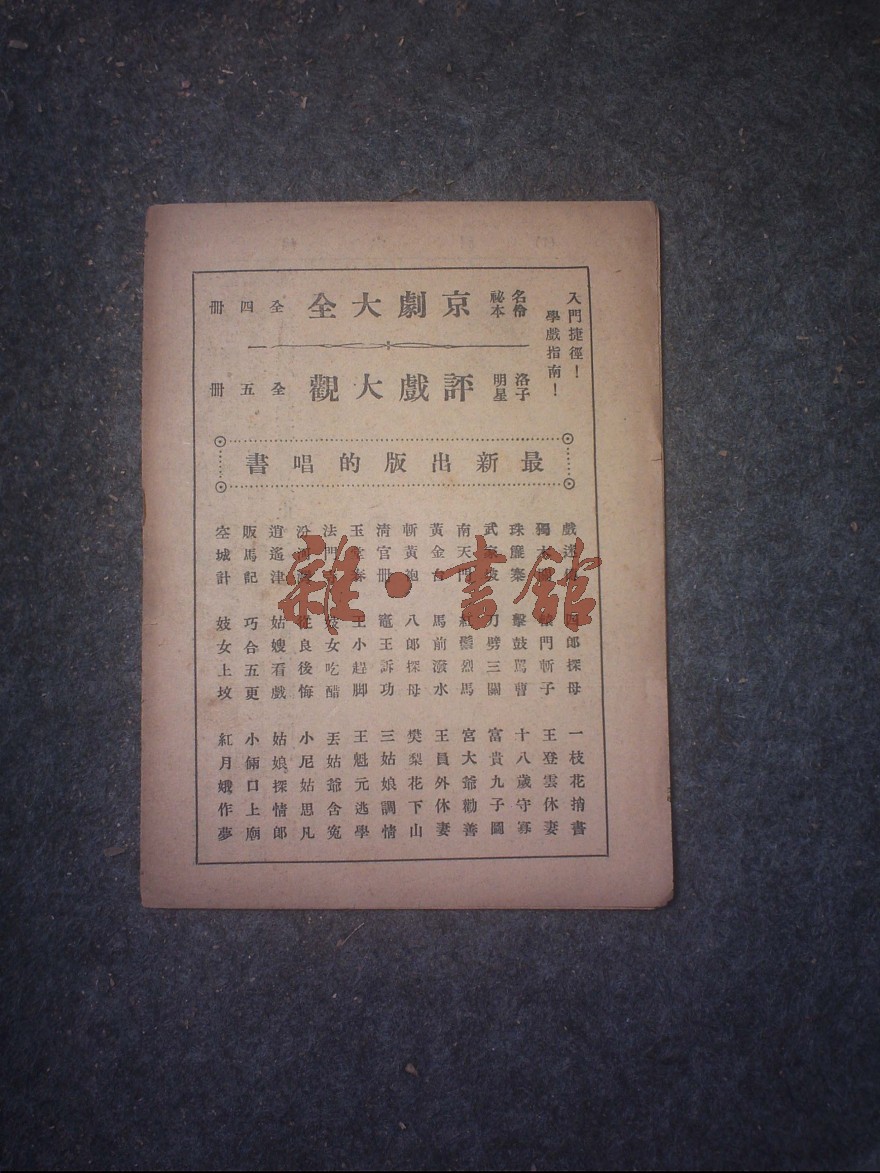 入門捷徑！
學戲指南！
名伶祕本 京劇大全 全四冊
洛子明星 評戲大觀 全五冊
最新出版的唱書
戲迷
獨木關
珠簾寨
武家坡
南天門
黃金台
斬黃袍
清官冊
玉堂春
法門寺
汾河灣
逍遙津
販馬記
空城計
四郎探母
轅門斬子
擊鼓罵曹
刀劈三關
紅鬃烈馬
馬前潑水
八郎探母
竈王訴功
王小趕脚
妓女吃醋
從良後悔
姑嫂看戲
巧合五更
妓女上墳
一枝花捎書
王登雲休妻
十八歲守寡
富貴九子圖
宮大爺勸善
王員外休妻
樊梨花下山
三姑娘調情
王魁元逃學
丟姑爺含冤
小尼姑思凡
姑娘探情郎
小倆口上廟
紅月娥作夢
雜·書館